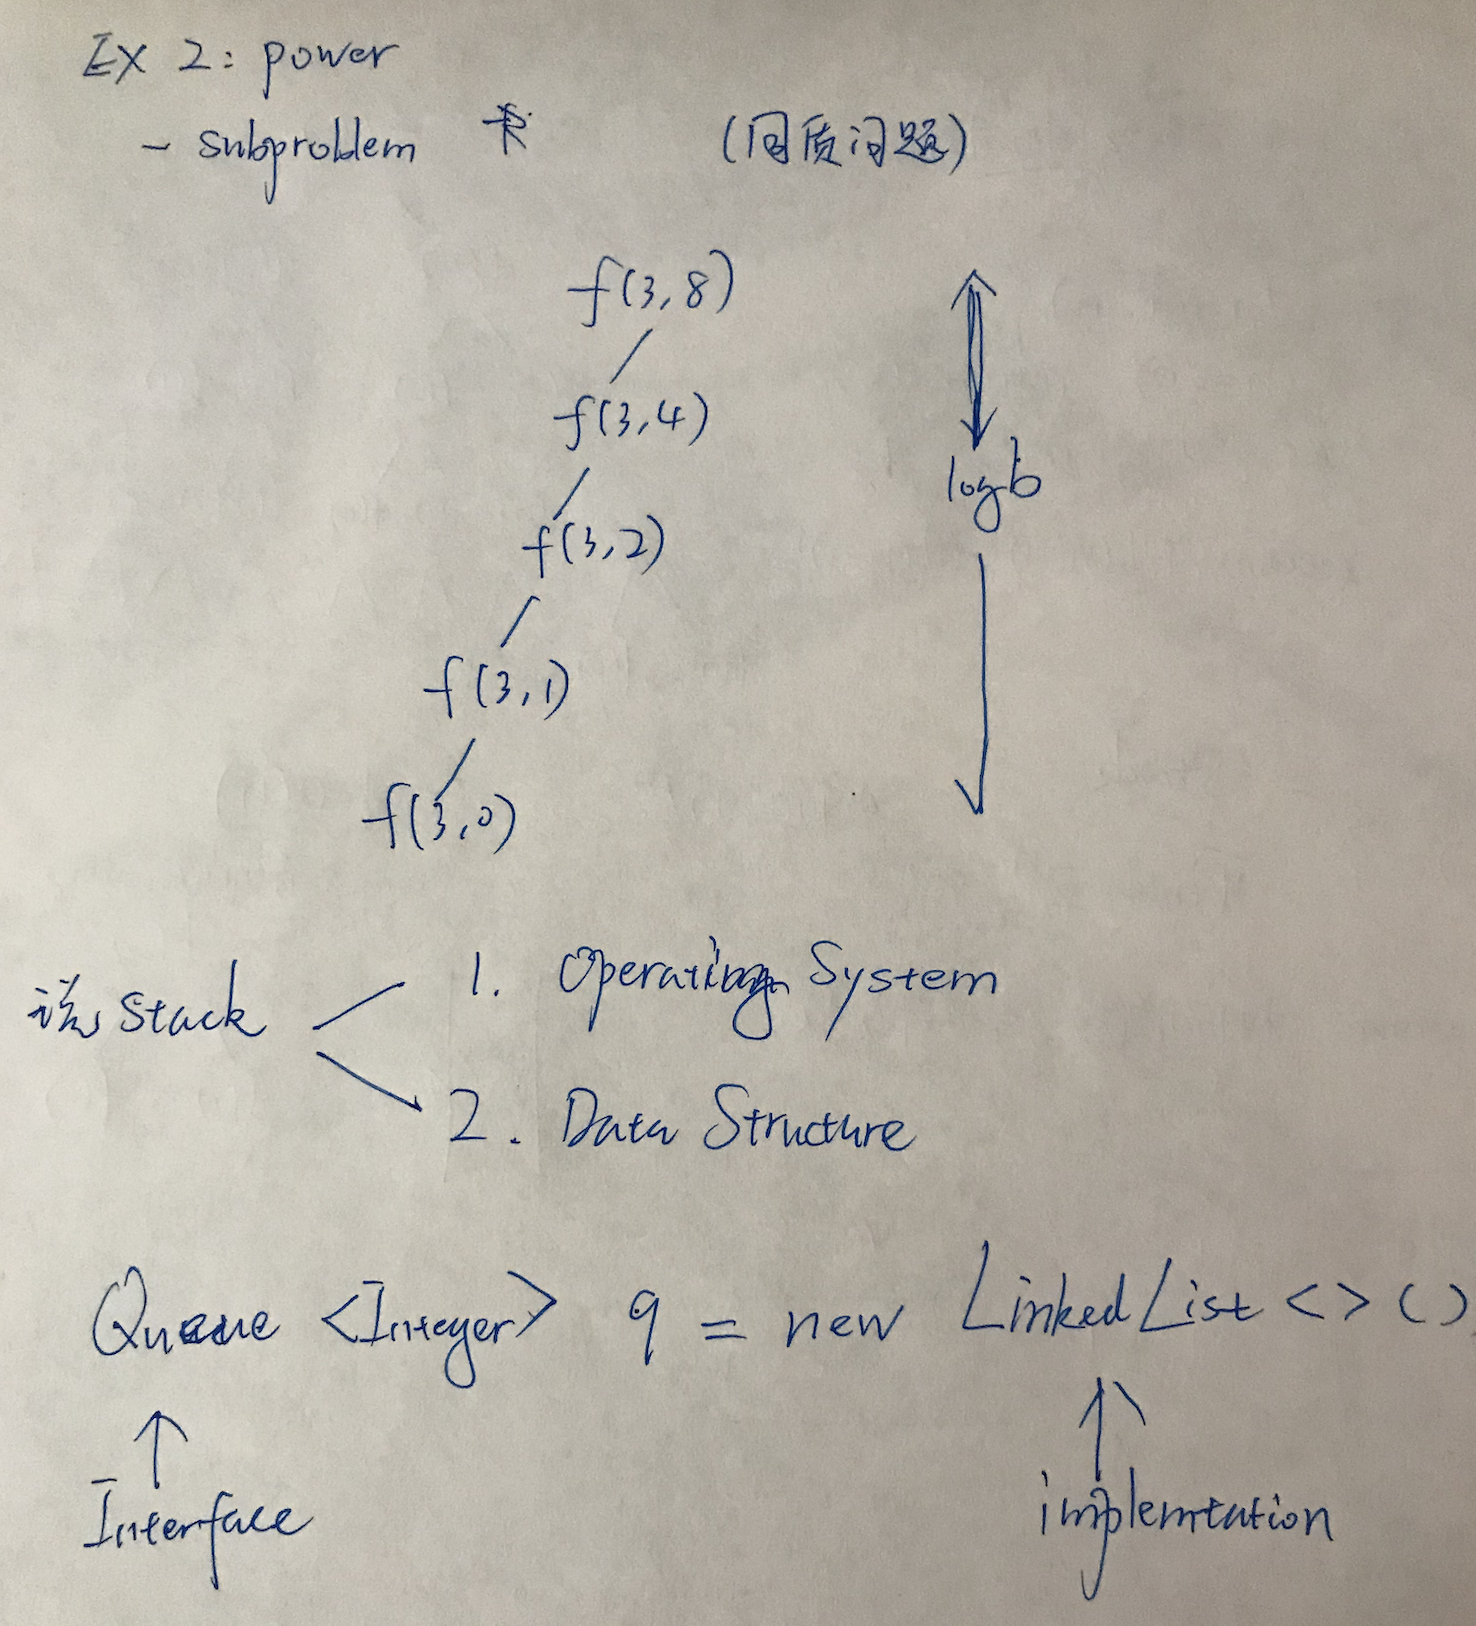 Ex 2: power
- subproblem (同质问题)
f(3,8)
f(3,4)
logb
f(3,2)
f(3,1)
f(3,0)
说 Stack
1. Operating System
2. Data Structure
Queue <Integer> q = new LinkedList<>()
Interface
implemtation